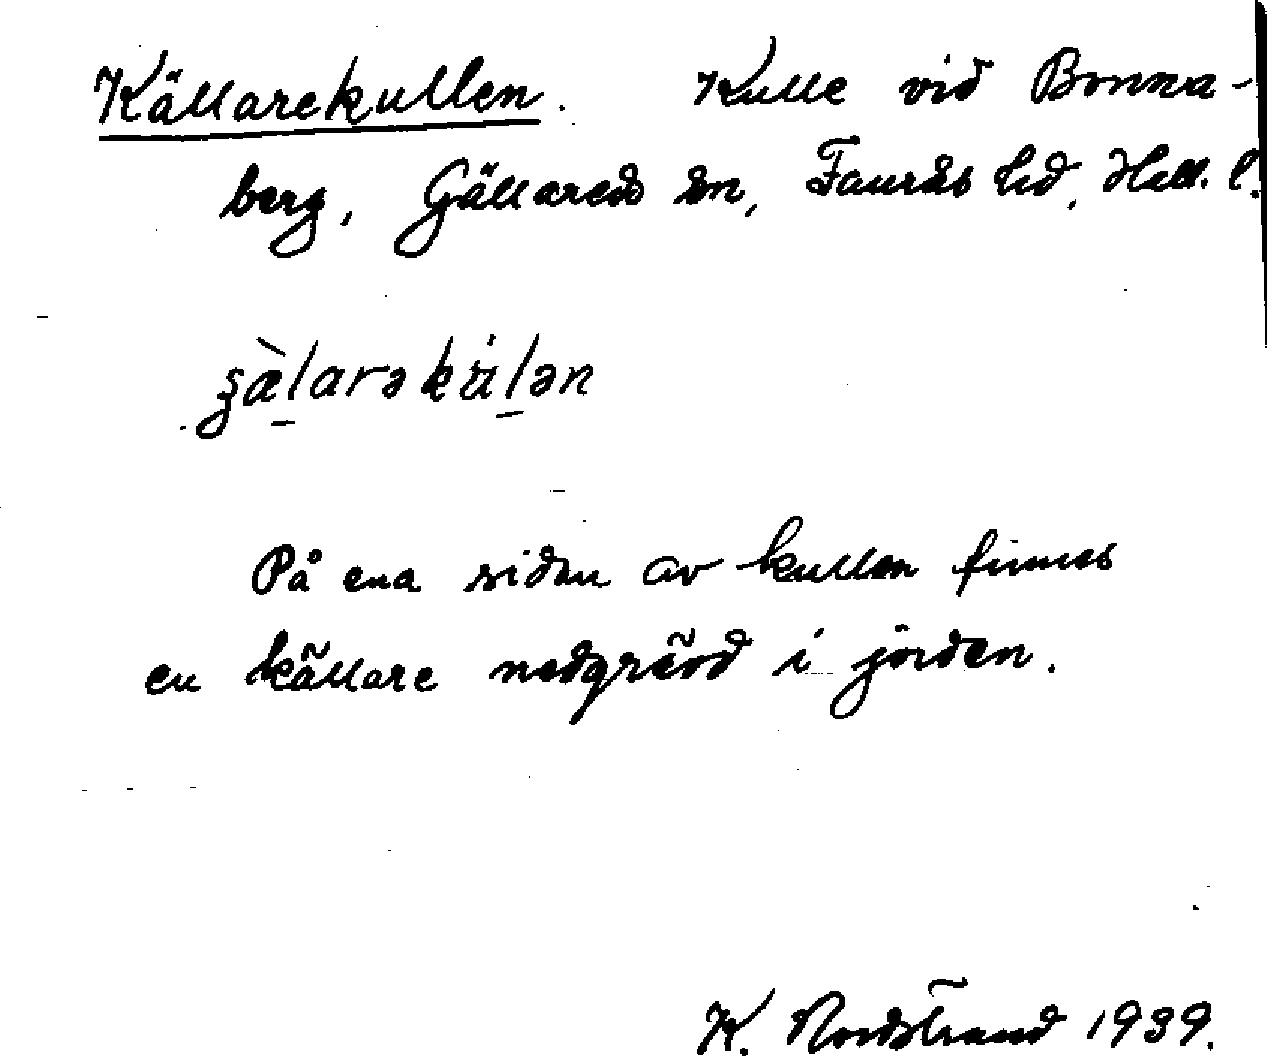 Källarekullen. Kulle vid Bonna-
berg, Gällareds sn, Faurås hd, Hall. l.
ʂæ̀larəkúlən
På ena sidan av kullen finnes
en källare nedgrävd i jorden.
K. Nordstrand 1939.